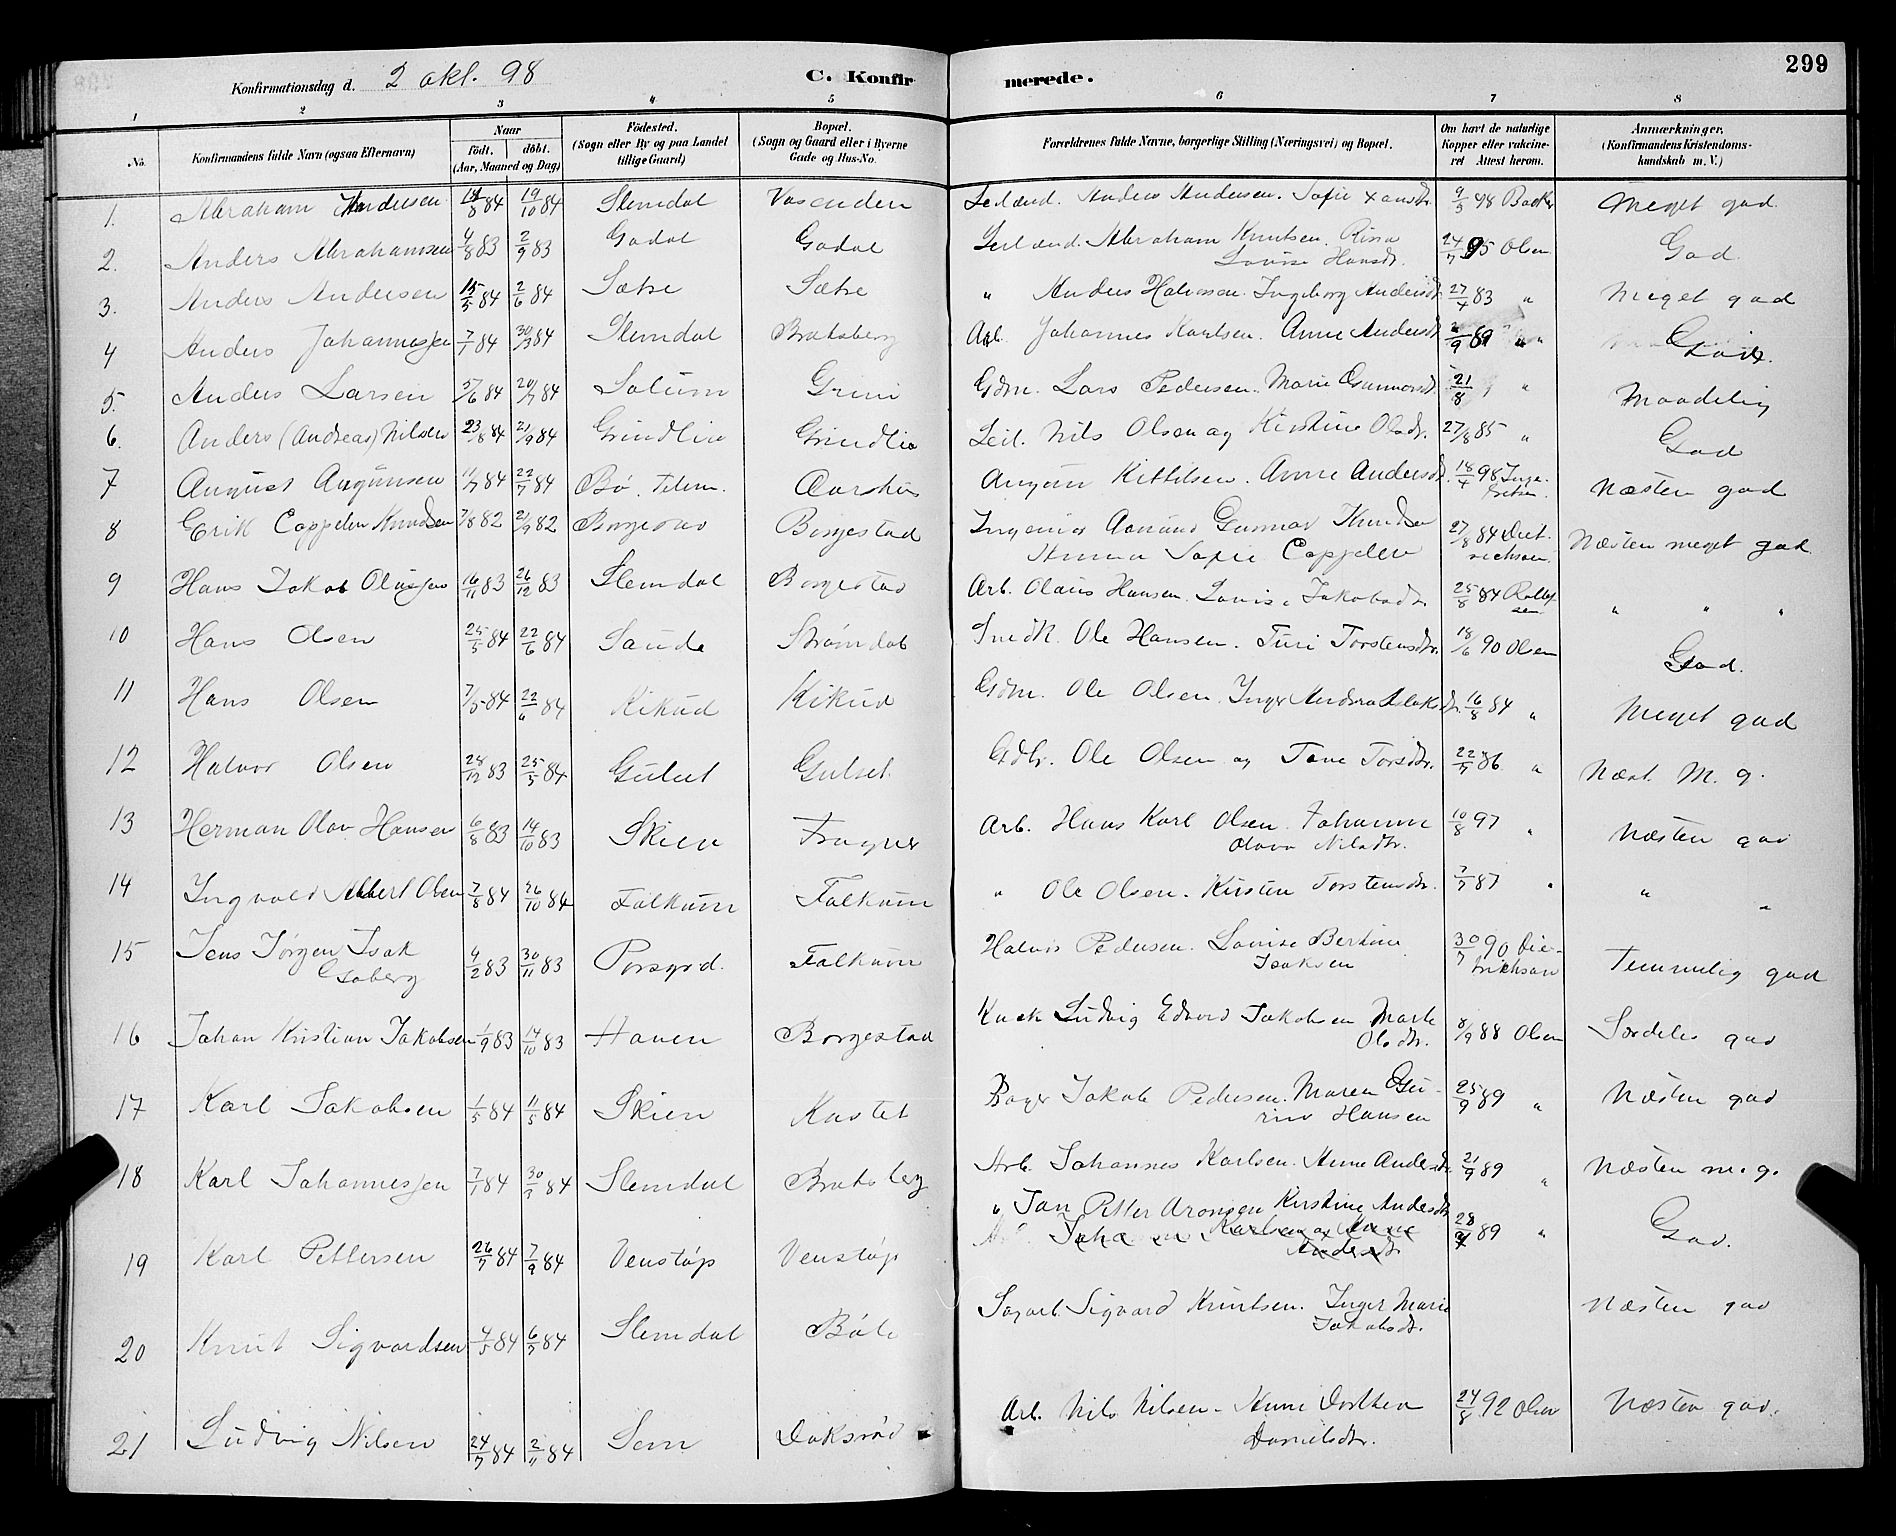 299
Konfirmationsdag d. 2 okt. 98 C. Konfirmerede.
1 2 3 4 5 6 7 8
No. Konfirmandens fulde Navn (ogsaa Efternavn) Naar født. døbt. (Aar, Maaned og Dag) Fødested. (Sogn eller By og paa Landet tillige Gaard) Bopæl. (Sogn og Gaard eller i Byerne Gade og Hus-No. Forældrenes fulde Navne, borgerlige Stilling (Næringsvei) og Bopæl. Om havt de naturlige Kopper eller vaccineret Attest herom. Anmærkninger. (Konfirmandens Kristendomskundskab m. V.)
1. Abraham Andersen 84 19/10 84 Slemdal Vasenden Leilænd. Anders Andersen. Sofie 9/5 98 Meget god
2. Anders Abrahamsen 4/8 83 2/9 83 Godal Godal Leilænd. Abraham Knutsen. Rina Lovise Hansdr. 24/7 95 Olsen God
3. Anders Andersen 15/5 84 2/6 84 Sætre Sætre " Anders Halvorsen. Ingeborg Andersdr. 27/4 83 " Meget god
4 Anders Johannessen 7/1 84 30/3 84 Slemdal Bratsberg Arb. Johannes Karlsen. Anne Andersdr. 89 " God.
5. Anders Larsen 5/6 84 20/7 84 Solum Grini Gdm. Lars Pedersen. Marie Gunnorsdr. 21/8 " Maadelig
6. Anders (Andreas) Nilsen 23/8 84 21/9 84 Grindlia Grindlia Leil. Nils Olsen og Kirstine Olsdr. 27/8 85 " God
7 August Augunsen 11/7 84 22/7 84 Bø. Telem. Aarhus Augun Kittilsen. Anne Andersdr. 18/4 98 Næsten god
8 Erik Cappelen Knudsen 7/8 82 21/9 82 Borgestad Borgestad Ingeniør Aanund Gunnar Knudsen Anna Sofie Cappelen 27/8 84 Diet-richson Næsten meget god
9 Hans Jakob Olaussen 16/11 83 26/12 83 Slemdal Borgestad Arb. Olaus Hansen. Lovise Jakobsdr. 25/8 84 Rollefsen " " "
10 Hans Olsen 25/5 84 22/6 84 Saude Strømdal Snedk. Ole Hansen. Turi Torstensdr. 18/6 90 Olsen God.
11 Hans Olsen 7/5 84 22/6 84 Kikud Kikud Gdm. Ole Olsen. Inger Andrea Aslaksdr. 16/8 84 " Meget god
12 Halvor Olsen 28/12 83 25/5 84 Gulset Gulset Gdbr. Ole Olsen og Tone Torsdr. 22/7 86 " Næst. M. g.
13 Herman Olav Hansen 6/8 83 14/10 83 Skien Frogner Arb. Hans Karl Olsen. Johanne Olava Nilsdr. 10/8 97 " Næsten god
14 Ingvald Albert Olsen 7/8 84 26/10 84 Falkum Falkum " Ole Olsen. Kirsten Torstensdr. 7/7 87 " " "
15 Jens Jørgen Isak Gsoberg 4/2 83 30/11 83 Porsgrd. Falkum Halvor Pedersen. Lovise Bertine Isaksen 30/7 90 Die-trichson Temmelig god
16 Johan Kristian Jakobsen 1/9 83 14/10 83 Haven Borgestad Kusk Ludvig Edvard Jakobsen Marte Olsdr. 8/9 88 Olsen Særdeles god
17 Karl Jakobsen 1/5 84 11/5 84 Skien Kastet Bager Jakob Pedersen. Maren Gu-rine Hansen 25/9 89 " Næsten god
18 Karl Johannessen 7/1 84 30/3 84 Slemdal Bratsberg Arb. Johannes Karlsen. Anne Andersdr. 21/9 89 " Næsten m. g.
" Jan Petter Aronsen Kirstine Andersdr.
19 Karl Pettersen 26/7 84 7/9 84 Venstøp Venstøp Karlsen og Anne Andersdr. 28 89 " God.
20 Knut Sigvardsen 4/5 84 6/7 84 Slemdal Bøle Sagarb. Sigvard Knutsen. Inger Marie Jakobsdr. Næsten god
21 Ludvig Nilsen 24/7 84 2/11 84 Sem Daksrød Arb. Nils Nilsen - Anne Dorthea Danielsdr. 24/8 92 Olsen Næsten god.